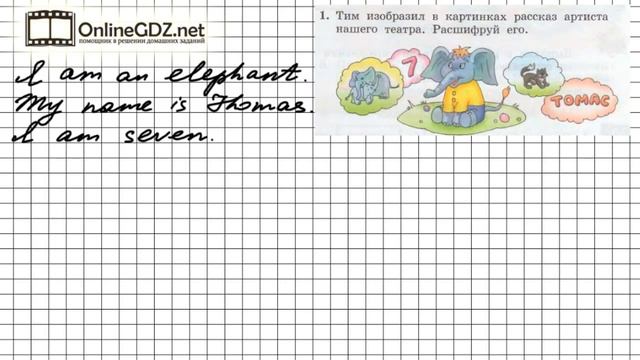 OnlineGDZ.net
помощник в решении домашних заданий
I am an elephant.
My name is Thomas.
I am seven.
1. Тим изобразил в картинках рассказ артиста
нашего театра. Расшифруй его.
7
ТОМАС